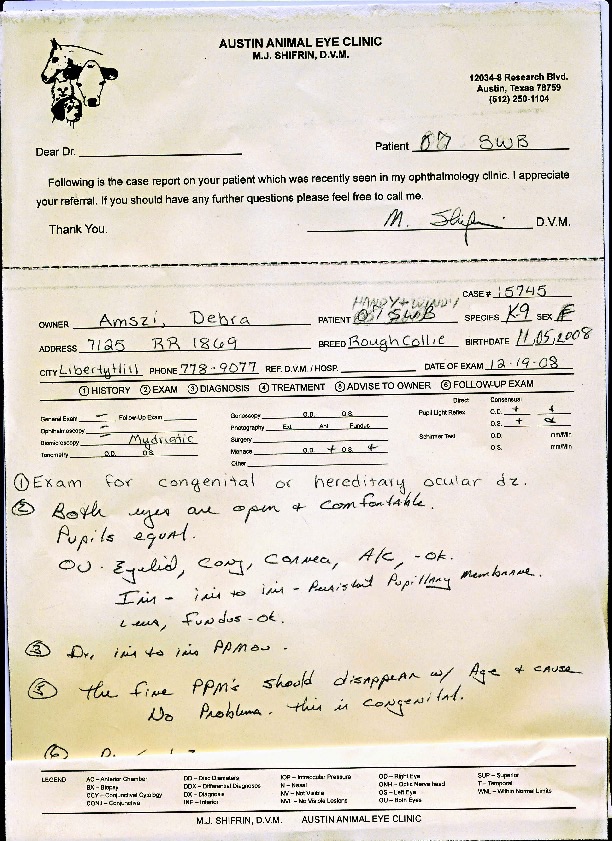 AUSTIN ANIMAL EYE CLINIC
M.J. SHIFRIN, D.V.M.
12034-8 Research Blvd.
Austin, Texas 78759
(512) 250-1104
Dear Dr.
Patient 07 SWB
Following is the case report on your patient which was recently seen in my ophthalmology clinic. I appreciate
your referral. If you should have any further questions please feel free to call me.
Thank You.
M. Shifrin D.V.M.
CASE # 15745
HANDY + WINDY
OWNER Amszi, Debra PATIENT 07 SWB SPECIES K-9 SEX F
ADDRESS 7125 RR 1869 BREED Rough Collie BIRTHDATE 11,05,2008
CITY Liberty Hill PHONE 778-9077 REF. D.V.M. / HOSP. DATE OF EXAM 12-19-08
① HISTORY ② EXAM ③ DIAGNOSIS ④ TREATMENT ⑤ ADVISE TO OWNER ⑥ FOLLOW-UP EXAM
General Exam Follow-Up Exam
Ophthalmoscopy
Biomicroscopy Mydriatic
Tonometry O.D. O.S.
Gonioscopy O.D. O.S.
Photography Ext. Ant. Fundus
Surgery
Menace O.D. + O.S. +
Other
Direct Consensual
Pupil Light Reflex O.D. + +
O.S. +
Schirmer Test O.D. mm/Min
O.S. mm/Min
① Exam for congenital or hereditary ocular dz.
② Both eyes are open + comfortable.
Pupils equal.
OU - Eyelid, Conj, Cornea, A/C, -ok.
Iris - iris to iris - Persistent Pupillary membrane.
Lens, fundus - ok.
③ Dx, iris to iris PPM OU.
⑤ the fine PPM's should disappear w/ Age + cause
No Problems. this is congenital.
⑥
LEGEND
AC – Anterior Chamber
BX – Biopsy
CCY – Conjunctival Cytology
CONJ – Conjunctiva
DD – Disc Diameters
DDX – Differential Diagnoses
DX – Diagnosis
INF – Inferior
IOP – Intraocular Pressure
N – Nasal
NV – Not Visible
NVL – No Visible Lesions
OD – Right Eye
ONH – Optic Nerve head
OS – Left Eye
OU – Both Eyes
SUP – Superior
T – Temporal
WNL – Within Normal Limits
M.J. SHIFRIN, D.V.M. AUSTIN ANIMAL EYE CLINIC